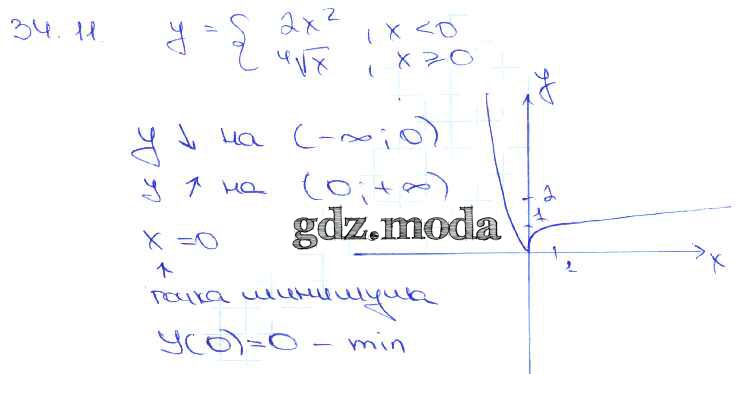 34.11. y = { 2x², x < 0
⁴√x, x ⩾ 0
y ↓ на (-∞; 0)
y ↑ на (0; +∞)
x = 0
↑
точка минимума
y(0) = 0 – min
y
2
1
1
x
gdz.moda